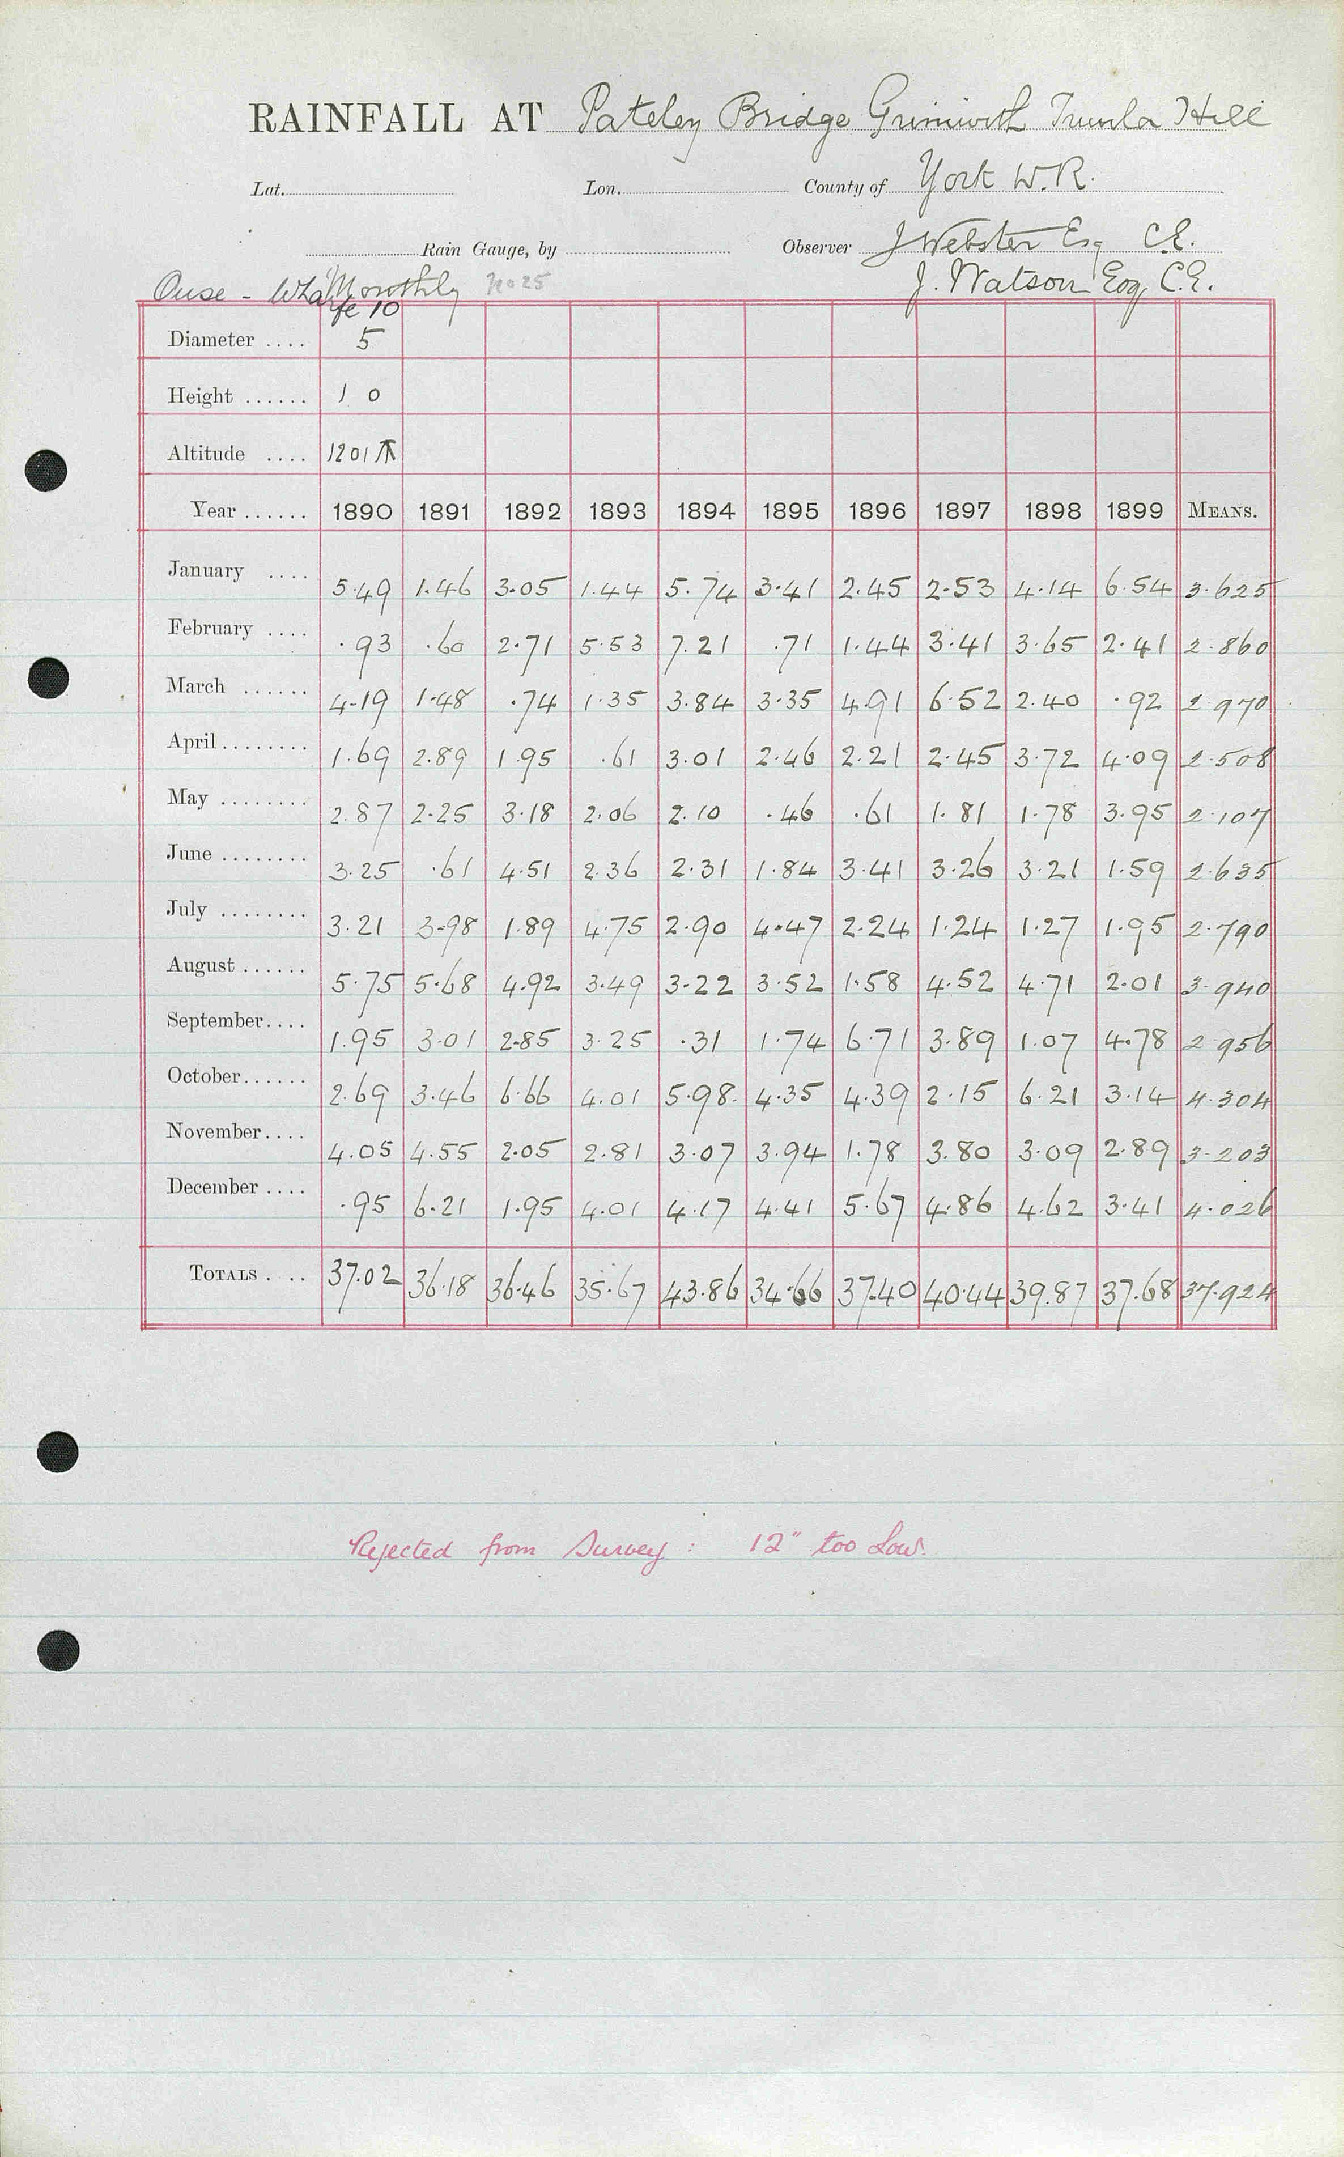 RAINFALL AT Pateley Bridge Grimwith Trunla Hill
Lat. Lon. County of York W.R.
Rain Gauge, by Observer J Webster Esq C.E.
Ouse - Wharfe 10 Monthly No 25 J. Watson Esq, C.E.
Diameter .... 5
Height ...... 1 0
Altitude .... 1201
Year ...... 1890 1891 1892 1893 1894 1895 1896 1897 1898 1899 MEANS.
January .... 5.49 1.46 3.05 1.44 5.74 3.41 2.45 2.53 4.14 6.54 3.625
February .... .93 .60 2.71 5.53 7.21 .71 1.44 3.41 3.65 2.41 2.860
March ...... 4.19 1.48 .74 1.35 3.84 3.35 4.91 6.52 2.40 .92 2.970
April ........ 1.69 2.89 1.95 .61 3.01 2.46 2.21 2.45 3.72 4.09 2.508
May ........ 2.87 2.25 3.18 2.06 2.10 .46 .61 1.81 1.78 3.95 2.107
June ........ 3.25 .61 4.51 2.36 2.31 1.84 3.41 3.26 3.21 1.59 2.635
July ........ 3.21 3.98 1.89 4.75 2.90 4.47 2.24 1.24 1.27 1.95 2.790
August ...... 5.75 5.68 4.92 3.49 3.22 3.52 1.58 4.52 4.71 2.01 3.940
September .... 1.95 3.01 2.85 3.25 .31 1.74 6.71 3.89 1.07 4.78 2.956
October ...... 2.69 3.46 6.66 4.01 5.98 4.35 4.39 2.15 6.21 3.14 4.304
November .... 4.05 4.55 2.05 2.81 3.07 3.94 1.78 3.80 3.09 2.89 3.203
December .... .95 6.21 1.95 4.01 4.17 4.41 5.67 4.86 4.62 3.41 4.026
TOTALS .... 37.02 36.18 36.46 35.67 43.86 34.66 37.40 40.44 39.87 37.68 37.924
Rejected from Survey : 12" too Low.